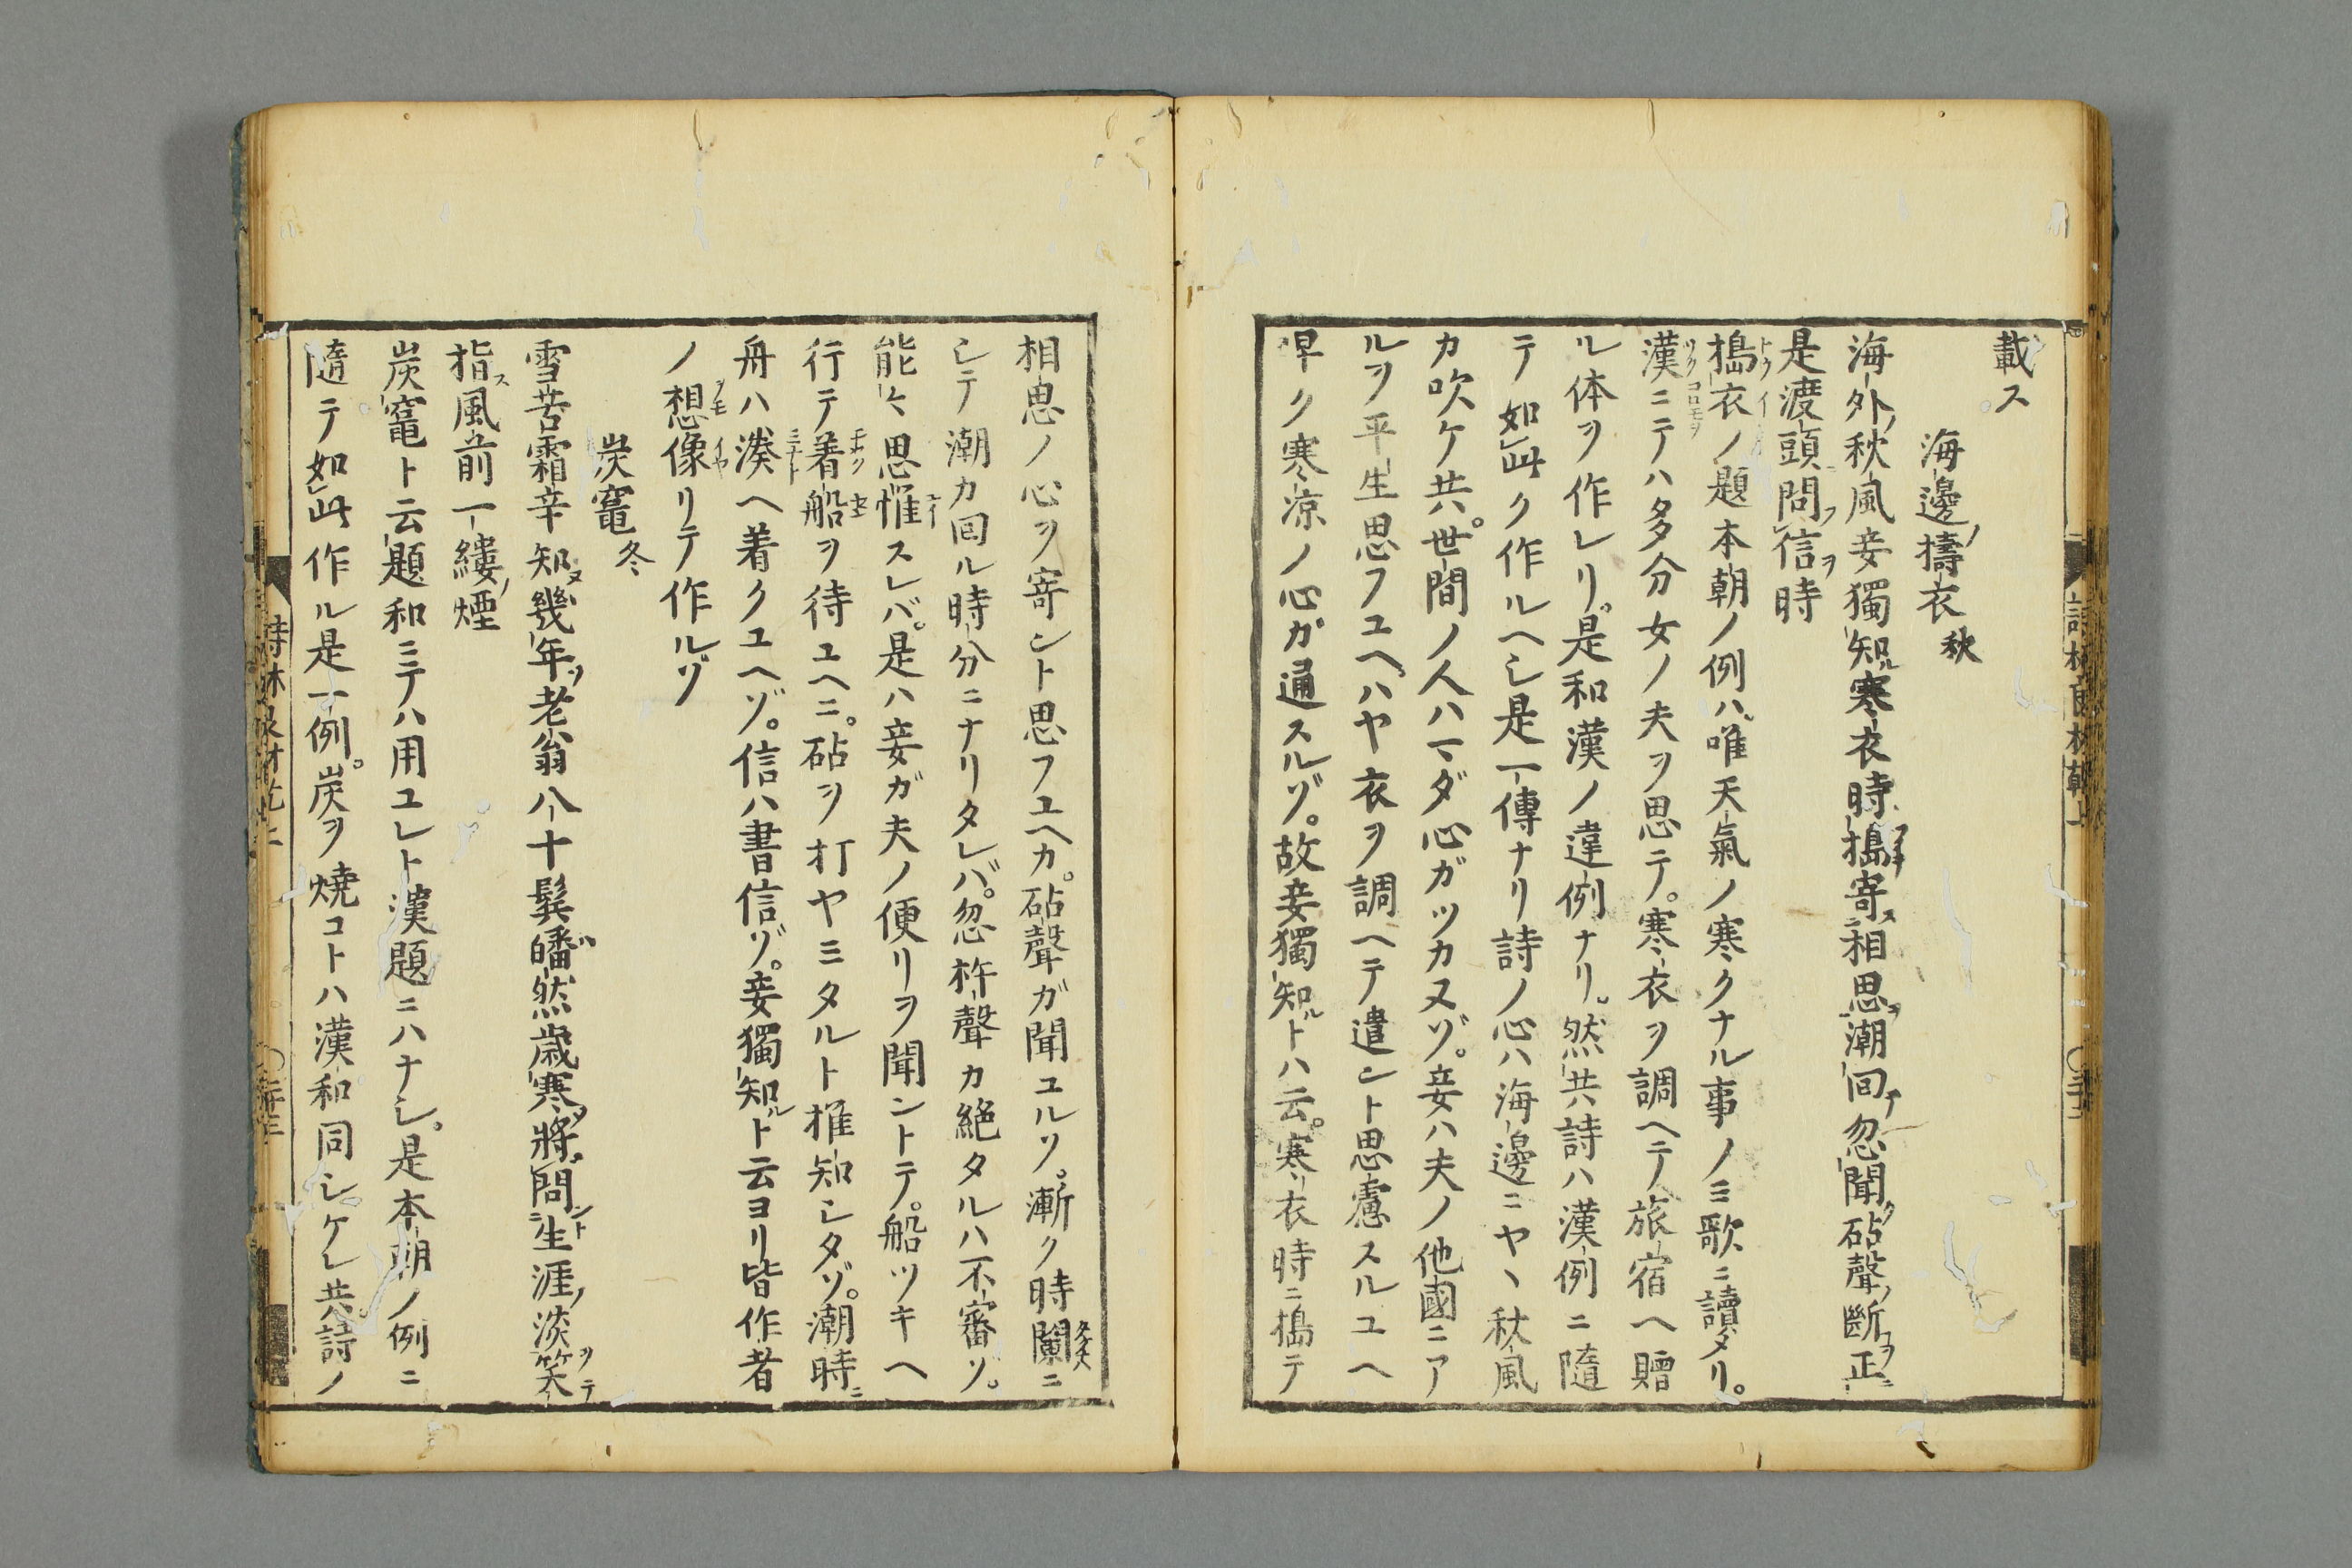 載ス
海邊ノ擣衣 秋
海外ノ秋風妾獨知ル寒衣時擣寄ス相思潮回テ忽聞ク砧聲ノ斷ヲ正ニ
是渡頭問フ信ヲ時
擣衣ノ題本朝ノ例ハ唯天氣ノ寒クナル事ノミ歌ニ讀タリ。
漢ニテハ多分女ノ夫ヲ思テ。寒衣ヲ調ヘテ旅宿ヘ贈
ル体ヲ作レリ。是和漢ノ違例ナリ。然共詩ハ漢例ニ隨
テ如此ク作ルヘシ是一傳ナリ詩ノ心ハ海邊ニヤヽ秋風
カ吹ケ共。世間ノ人ハマダ心ガツカヌゾ。妾ハ夫ノ他國ニア
ルヲ平生思フユヘハヤ衣ヲ調ヘテ遣ント思慮スルユヘ
早ク寒凉ノ心ガ通スルゾ。故妾獨知ルトハ云。寒衣時ニ擣テ
相思ノ心ヲ寄ント思フユヘカ。砧聲ガ聞ユルソ。漸ク時闌ニ
シテ潮カ回ル時分ニナリタレバ。忽杵聲カ絶タルハ不審ゾ。
能々思惟スレバ。是ハ妾ガ夫ノ便リヲ聞ントテ。船ツキヘ
行テ着船ヲ待ユヘニ。砧ヲ打ヤミタルト推知シタゾ。潮時ニ
舟ハ湊ヘ着クユヘゾ。信ハ書信ゾ。妾獨知ルト云ヨリ皆作者
ノ想像リテ作ルゾ
炭竈 冬
雪苦霜辛知ヌ幾年ソ老翁八十鬂皤然歳寒將問ント生涯ノ淡笑ヲテ
指ス風前一縷ノ煙
炭竈ト云題和ニテハ用ユレト漢題ニハナシ。是本朝ノ例ニ
隨テ如此作ル是一例。炭ヲ燒コトハ漢和同シケレ共。詩ノ